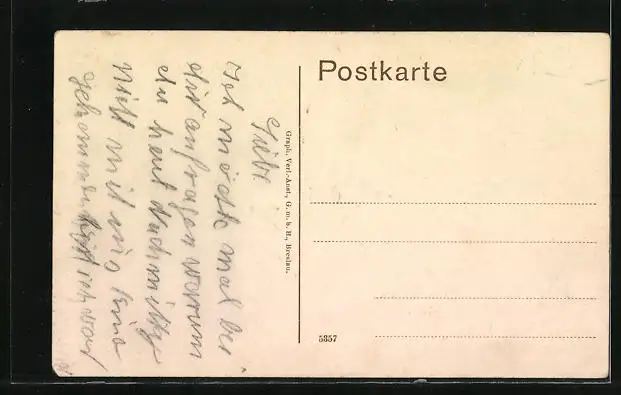 Postkarte
Liebe
Ich möchte mal bei
dir anfragen warum
du heut Nachmittag
nicht mit ins Kino
gekommen bist ich war
Graph. Verl.-Anst., G. m. b. H., Breslau.
5357